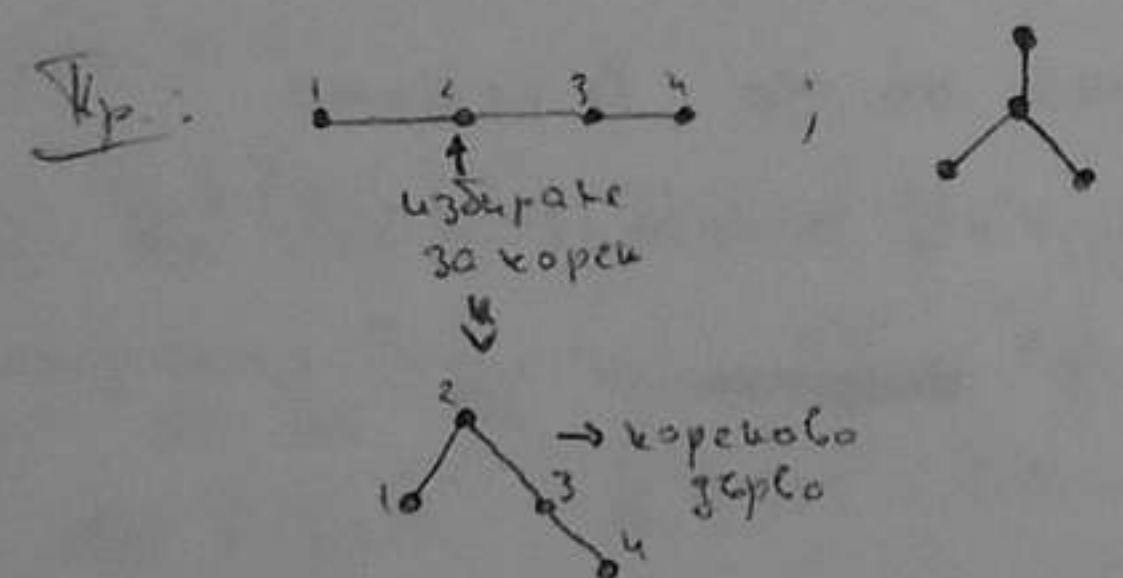 Пр.:
1 2 3 4 ;
избираме
за корен
2
1 3 → кореново
дърво
4